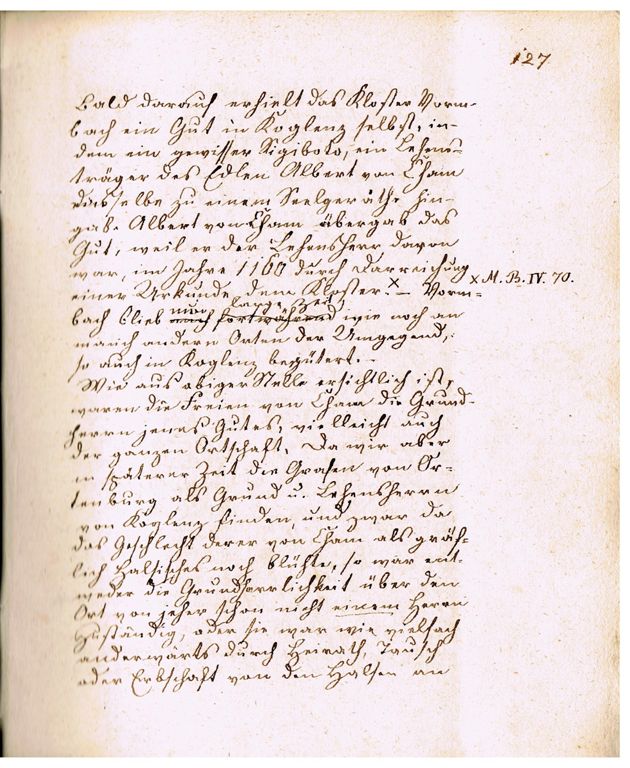 127
Bald darauf erhielt das Kloster Vorm-
bach ein Gut in Koglenz selbst, in-
dem ein gewisser Sigiboto, ein Lehens-
träger des Edlen Albert von Cham
dasselbe zu einem Seelgeräthe hin-
gab. Albert von Cham übergab das
Gut, weil er der Lehensherr davon
war, im Jahre 1160 durch Darreichung
einer Urkunde dem Kloster. x – Vorm-
x M. B. IV. 70.
lange Zeit,
bach blieb noch fortwährend wie noch an
manch andern Orten der Umgegend,
so auch in Koglenz begütert. –
Wie aus obiger Stelle ersichtlich ist,
waren die Freien von Cham die Grund-
herrn jenes Gutes, vielleicht auch
der ganzen Ortschaft. Da wir aber
in späterer Zeit die Grafen von Or-
tenburg als Grund u. Lehensherrn
von Koglenz finden, und zwar da
das Geschlecht derer von Cham als gräf-
lich Halsisches noch blühte, so war ent-
weder die Grundherrlichkeit über den
Ort von jeher schon nicht einem Herrn
zuständig, oder sie war wie vielfach
anderwärts durch Heirath, Tausch
oder Erbschaft von den Halsen an